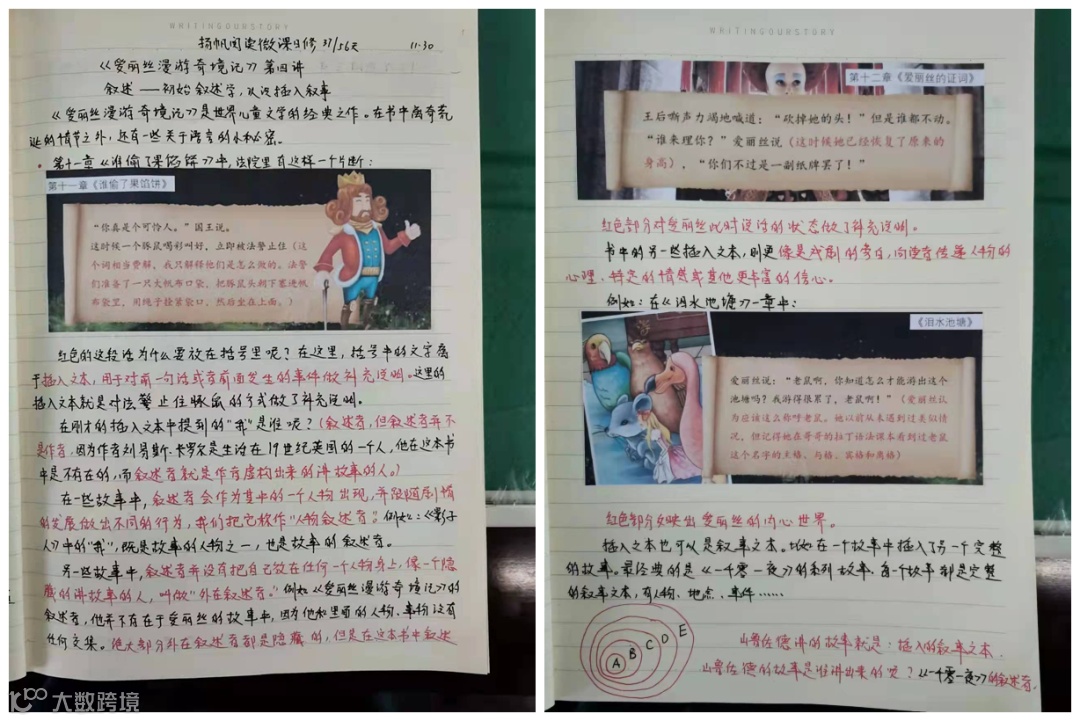 WRITINGOURSTORY
扬帆阅读微课日修 37/56天 11.30
《爱丽丝漫游奇境记》第四讲
叙述——初始叙述学，认识插入叙事
《爱丽丝漫游奇境记》是世界儿童文学的经典之作。在书中离奇荒
诞的情节之外，还有一些关于语言的小秘密。
第十一章《谁偷了果馅饼》中，法院里有这样一个片断：
第十一章《谁偷了果馅饼》
“你真是个可怜人。”国王说。
这时候一个豚鼠喝彩叫好，立即被法警止住（这
个词相当费解，我只解释他们是怎么做的。法警
们准备了一只大帆布口袋，把豚鼠头朝下塞进帆
布袋里，用绳子拴紧袋口，然后坐在上面。）
红色的这段话为什么要放在括号里呢？在这里，括号中的文字属
于插入文本，用于对前一句话或者前面发生的事件做补充说明。这里的
插入文本就是对法警止住豚鼠的方式做了补充说明。
在刚才的插入文本中提到的“我”是谁呢？（叙述者，但叙述者并不
是作者，因为作者刘易斯·卡罗尔是生活在19世纪英国的一个人，他在这本书
中是不存在的，而叙述者就是作者虚构出来的讲故事的人。）
在一些故事中，叙述者会作为其中的一个人物出现，并跟随剧情
的发展做出不同的行为，我们把它称作“人物叙述者”。例如：《影子
人》中的“我”，既是故事的人物之一，也是故事的叙述者。
另一些故事中，叙述者并没有把自己放在任何一个人物身上，像一个隐
藏的讲故事的人，叫做“外在叙述者。”例如《爱丽丝漫游奇境记》的
叙述者，他并不存在于爱丽丝的故事中，因为他和里面的人物、事物没有
任何交集。绝大部分外在叙述者都是隐藏的，但是在这本书中叙述
大数跨境
WRITINGOURSTORY
第十二章《爱丽丝的证词》
王后嘶声力竭地喊道：“砍掉她的头！”但是谁都不动。
“谁来理你？”爱丽丝说（这时候她已经恢复了原来的
身高），“你们不过是一副纸牌罢了！”
红色部分对爱丽丝此时说话的状态做了补充说明。
书中的另一些插入文本，则更像是戏剧的旁白，向读者传递人物的
心理、特定的情感或其他更丰富的信心。
例如：在《泪水池塘》一章中：
《泪水池塘》
爱丽丝说：“老鼠啊，你知道怎么才能游出这个
池塘吗？我游得很累了，老鼠啊！”（爱丽丝认
为应该这么称呼老鼠，她以前从未遇到过类似情
况，但记得她在哥哥的拉丁语法课本看到过老鼠
这个名字的主格、与格、宾格和离格）
红色部分反映出爱丽丝的内心世界。
插入文本也可以是叙事文本。比如在一个故事中插入了另一个完整
的故事。最经典的是《一千零一夜》的系列故事，每一个故事都是完整
的叙事文本，有人物、地点、事件……
A B C D E
山鲁佐德讲的故事就是：插入的叙事文本。
山鲁佐德的故事是谁讲出来的呢？《一千零一夜》的叙述者。